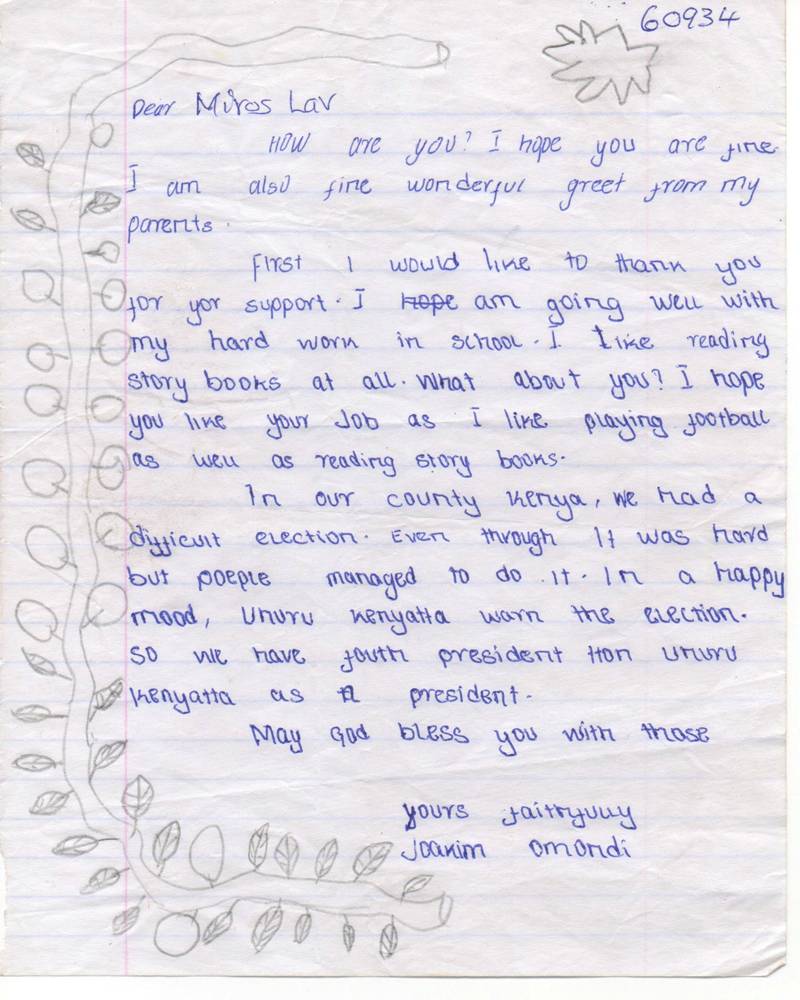 60934
Dear Miros Lav
How are you? I hope you are fine.
I am also fine wonderful greet from my
parents.
First I would like to thank you
for yor support. I hope am going well with
my hard work in school. I like reading
story books at all. What about you? I hope
you like your Job as I like playing football
as well as reading story books.
In our county Kenya, we had a
difficult election. Even through It was hard
but poeple managed to do .it. In a happy
mood, Uhuru Kenyatta warn the election.
So we have fouth president Hon Uhuru
Kenyatta as president.
May God bless you with those
yours faithfully
Joakim Omondi